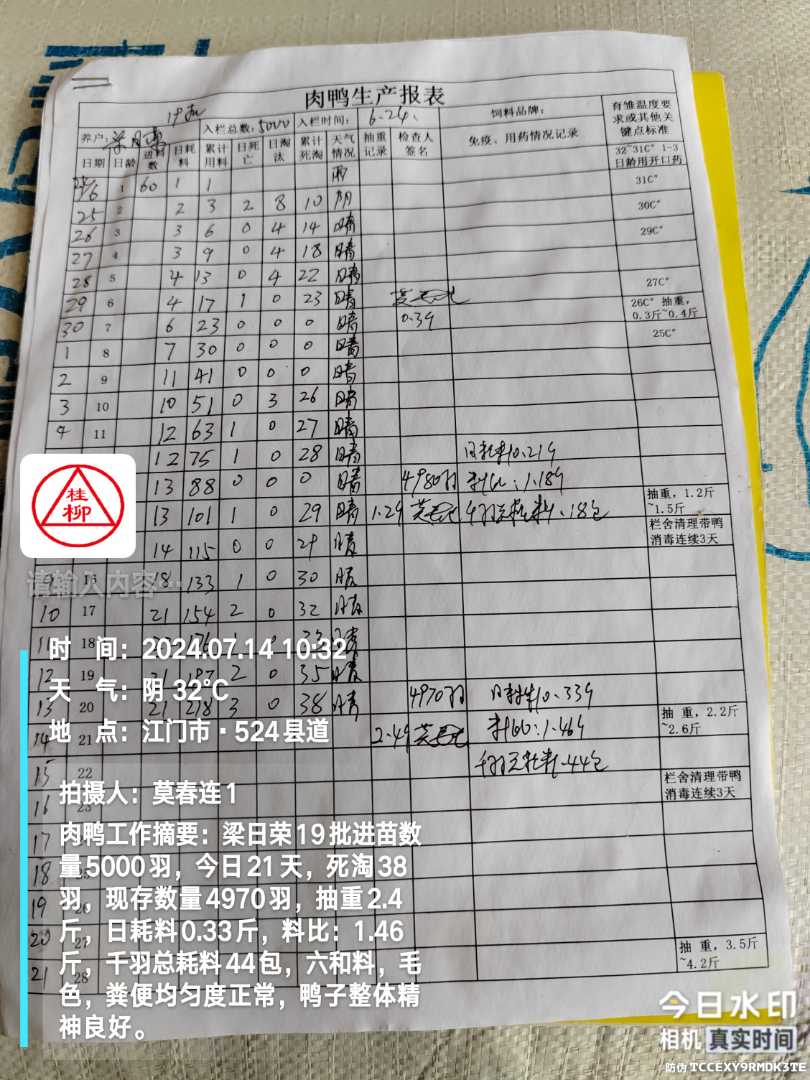 肉鸭生产报表
19批
养户: 入栏总数: 5000 入栏时间: 6.24. 饲料品牌: 有雏温度要求或其他关键点标准
日期 日龄 进料数 日耗料 累计用料 日死亡 日淘汰 累计死淘 天气情况 抽重记录 检查人签名 免疫、用药情况记录
1 60 1 1 雨 32~31C° 1-3日龄用开口药
25 2 2 3 2 8 10 阴 31C°
26 3 3 6 0 4 14 晴 30C°
27 4 3 9 0 4 18 晴 29C°
28 5 4 13 0 4 22 晴
29 6 4 17 1 0 23 晴 27C°
30 7 6 23 0 0 0 晴 0.39 26C° 抽重,0.3斤~0.4斤
1 8 7 30 0 0 0 晴 25C°
2 9 11 41 0 0 0 晴
3 10 10 51 0 3 26 晴
4 11 12 63 1 0 27 晴
12 75 1 0 28 晴 日耗料0.219
13 88 0 0 0 晴 4980羽 料比:1.189
13 101 1 0 29 晴 1.29 抽重,1.2斤~1.5斤
14 115 0 0 29 晴 栏舍清理带鸭消毒连续3天
9 16 18 133 1 0 30 晴
10 17 21 154 2 0 32 晴
11 18 晴
12 19 21 197 2 0 35 晴
13 20 21 218 3 0 38 晴 4970羽 日耗料0.339
14 21 2.49 料比:1.469 抽重,2.2斤~2.6斤
15 22 千羽总耗料44包
16 栏舍清理带鸭消毒连续3天
17
18
19
20 27
21 28 抽重,3.5斤~4.2斤
桂柳
请输入内容…
时 间:2024.07.14 10:32
天 气:阴 32℃
地 点:江门市·524县道
拍摄人:莫春连1
肉鸭工作摘要:梁日荣19批进苗数
量5000羽,今日21天,死淘38
羽,现存数量4970羽,抽重2.4
斤,日耗料0.33斤,料比:1.46
斤,千羽总耗料44包,六和料,毛
色,粪便均匀度正常,鸭子整体精
神良好。
今日水印
相机 真实时间
防伪 TCCEXY9RMDK3TE